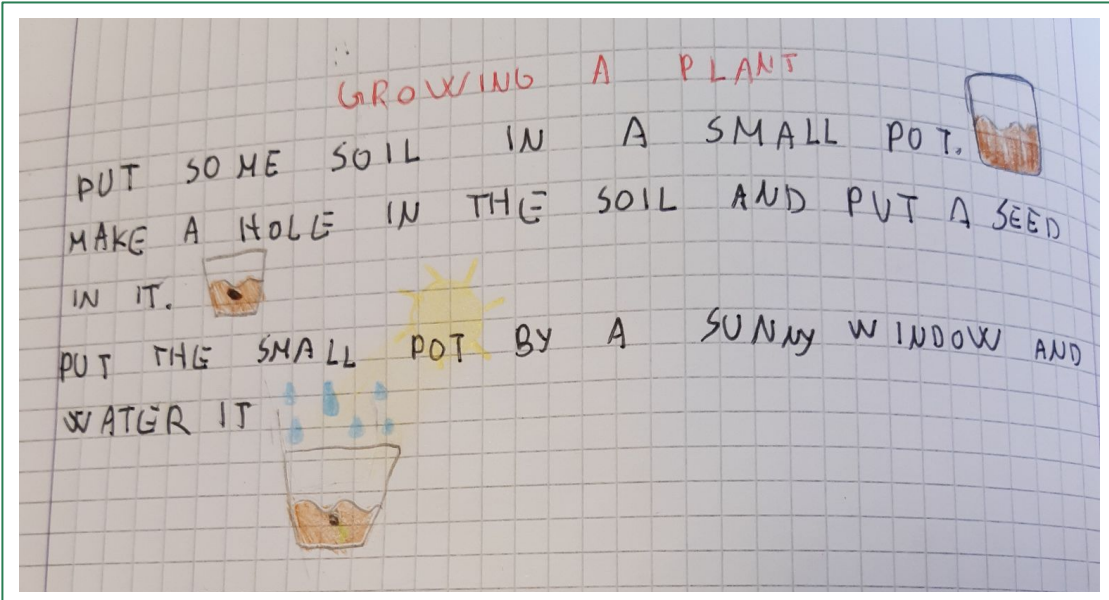 GROWING A PLANT
PUT SOME SOIL IN A SMALL POT.
MAKE A HOLE IN THE SOIL AND PUT A SEED
IN IT.
PUT THE SMALL POT BY A SUNNy WINDOW AND
WATER IT